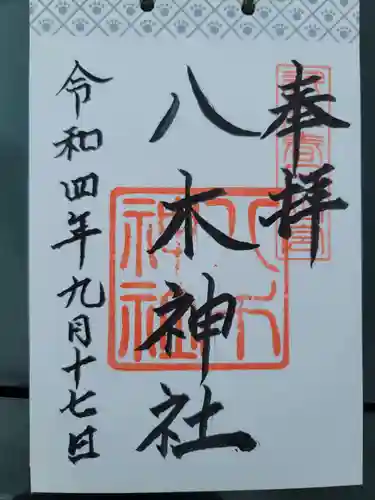 奉拝
八木神社
令和四年九月十七日
八木神社